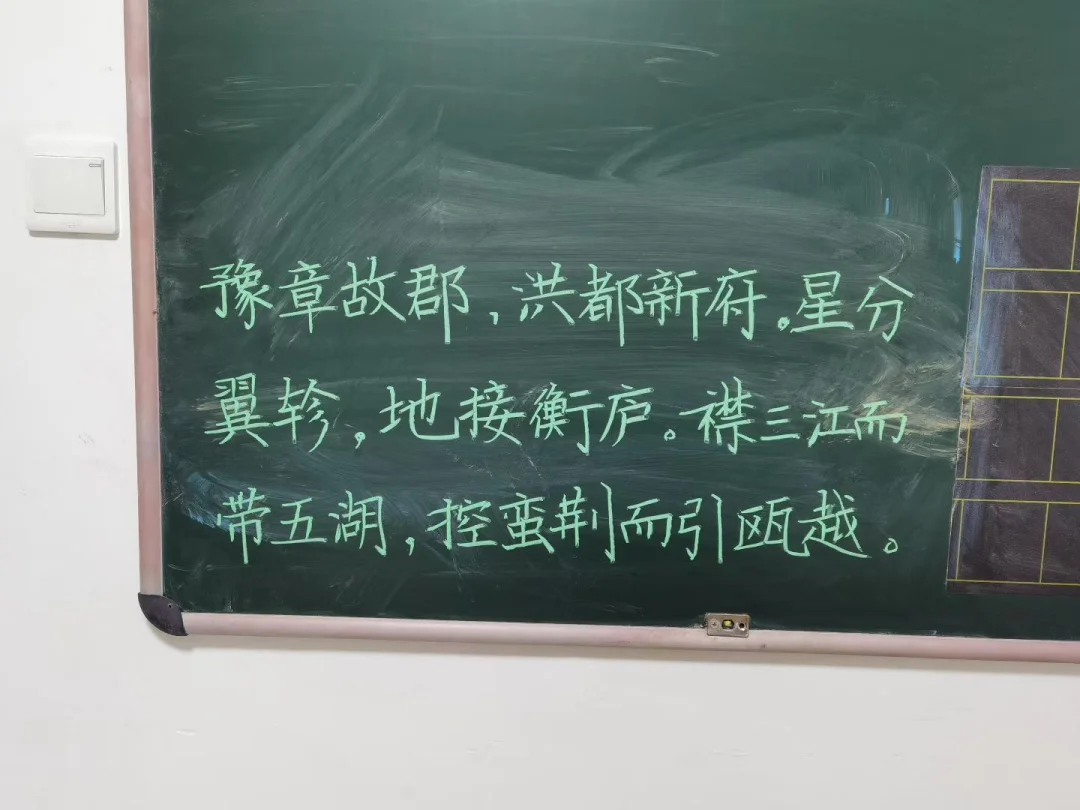 豫章故郡，洪都新府。星分
翼轸，地接衡庐。襟三江而
带五湖，控蛮荆而引瓯越。